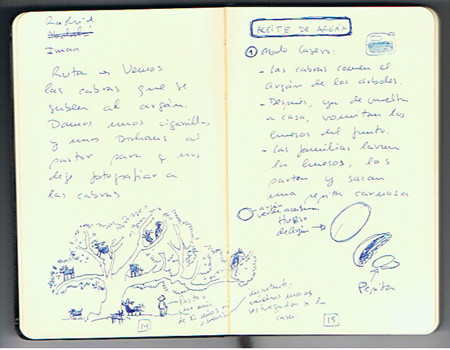 Rachid
Iman
Ruta → Vemos
las cabras que se
suben al argán.
Damos unos cigarrillos
y unos Dirhans al
pastor para que nos
deje fotografiar a
las cabras
Pastor
14
ACEITE DE ARGÁN
1 Modo casero:
- Las cabras comen el
Argán de los árboles.
- Después, ya de vuelta
a casa, vomitan los
huesos del fruto.
- Las familias lavan
los huesos, los
parten y sacan
una pepita carnosa
Hueso
de Argán
Pepita
casa.
15